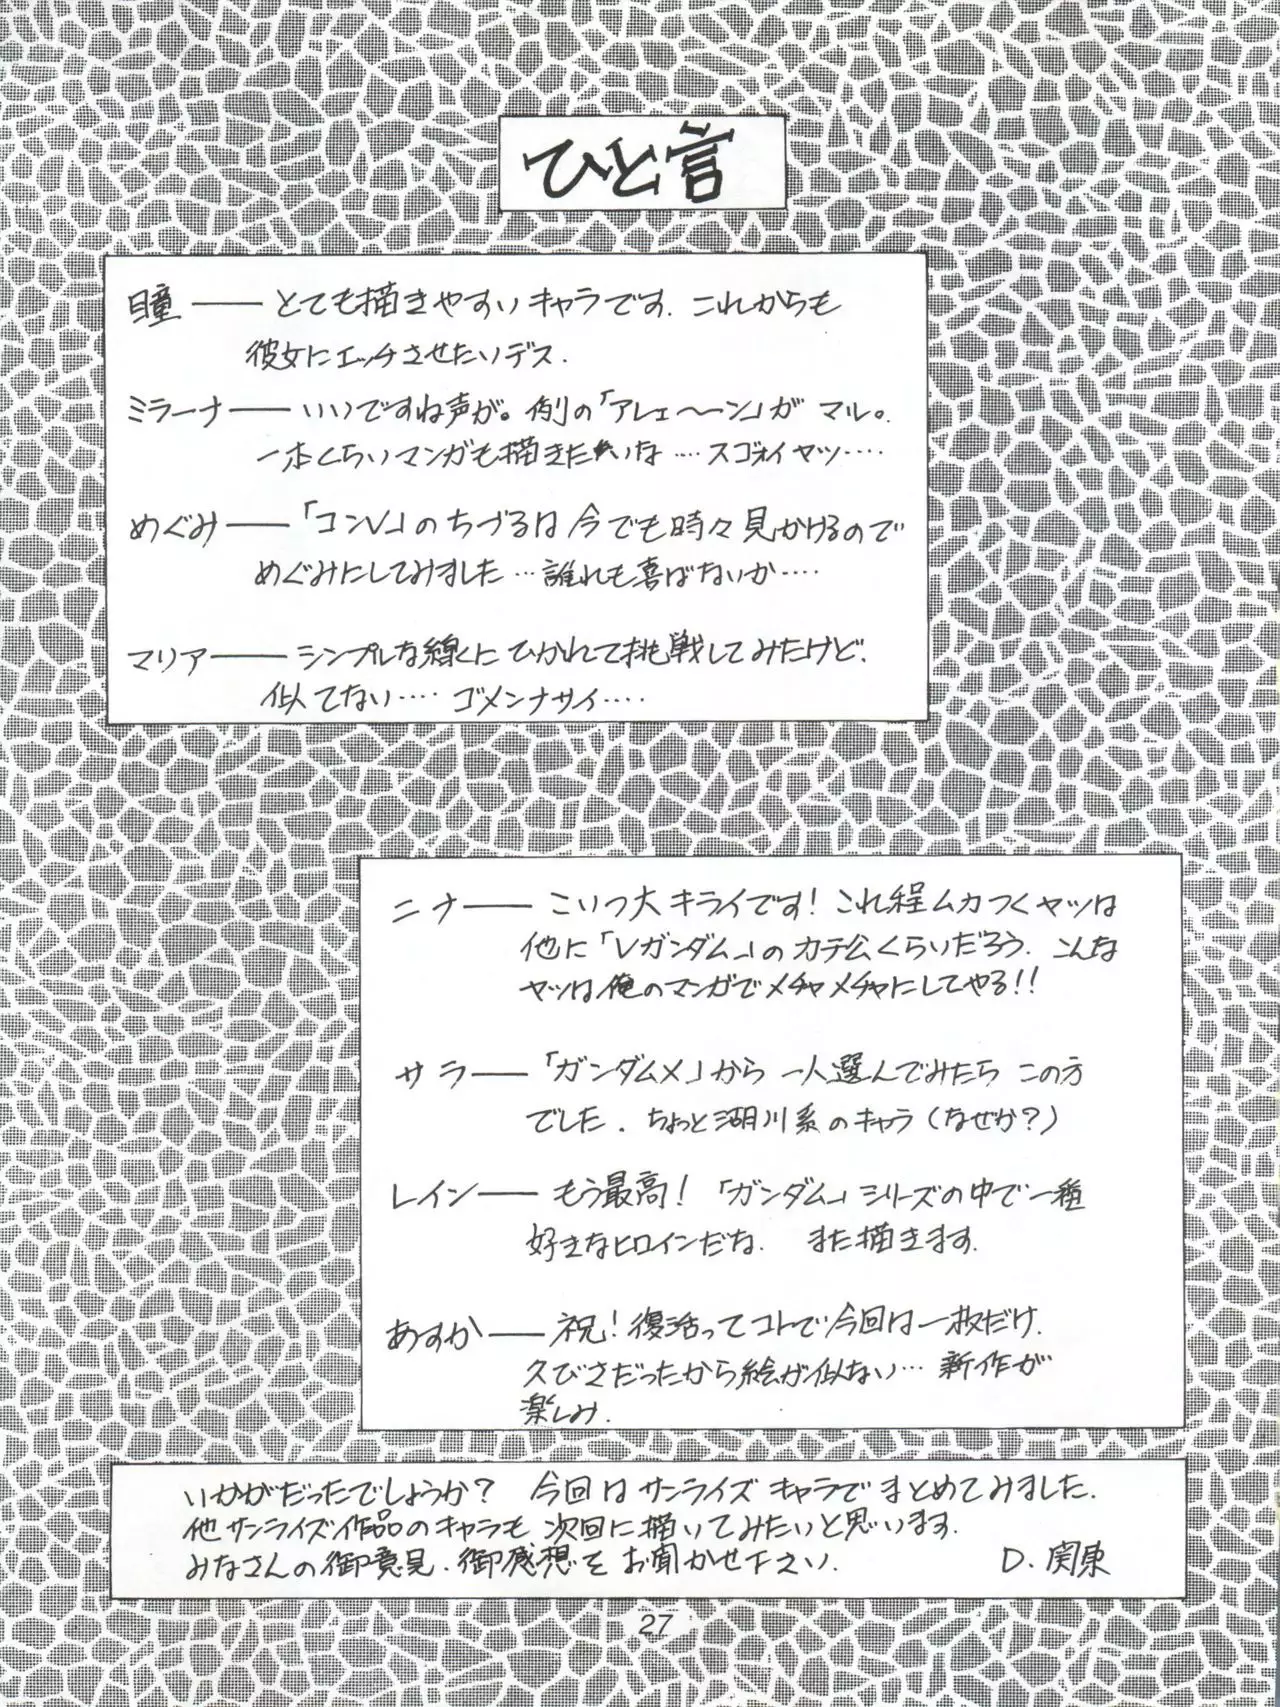 ひと言
瞳――とても描きやすいキャラです.これからも
彼女にエッチさせたいデス.
ミラーナ――いいですね声が。例の「アレェ〜〜ン」が マル。
一本くらいマンガも描きたいな……スゴォイヤツ……
めぐみ――「コンV」のちづるは今でも時々見かけるので
めぐみにしてみました…誰れも喜ばないか……
マリア――シンプルな線にひかれて挑戦してみたけど.
似てない……ゴメンナサイ……
ニナ――こいつ大キライです!これ程ムカつくヤツは
他に「Vガンダム」のカテ公くらいだろう.こんな
ヤツは俺のマンガでメチャメチャにしてやる!!
サラ――「ガンダムX」から一人選んでみたらこの方
でした.ちょっと湖川系のキャラ(なぜか?)
レイン――もう最高!「ガンダム」シリーズの中で一種
好きなヒロインだな. また描きます.
あすか――祝!復活ってコトで今回は一枚だけ.
久びさだったから絵が似ない…新作が
楽しみ.
いかがだったでしょうか? 今回はサンライズキャラでまとめてみました.
他サンライズ作品のキャラも次回に描いてみたいと思います.
みなさんの御意見.御感想をお聞かせ下さい. D.関東
27